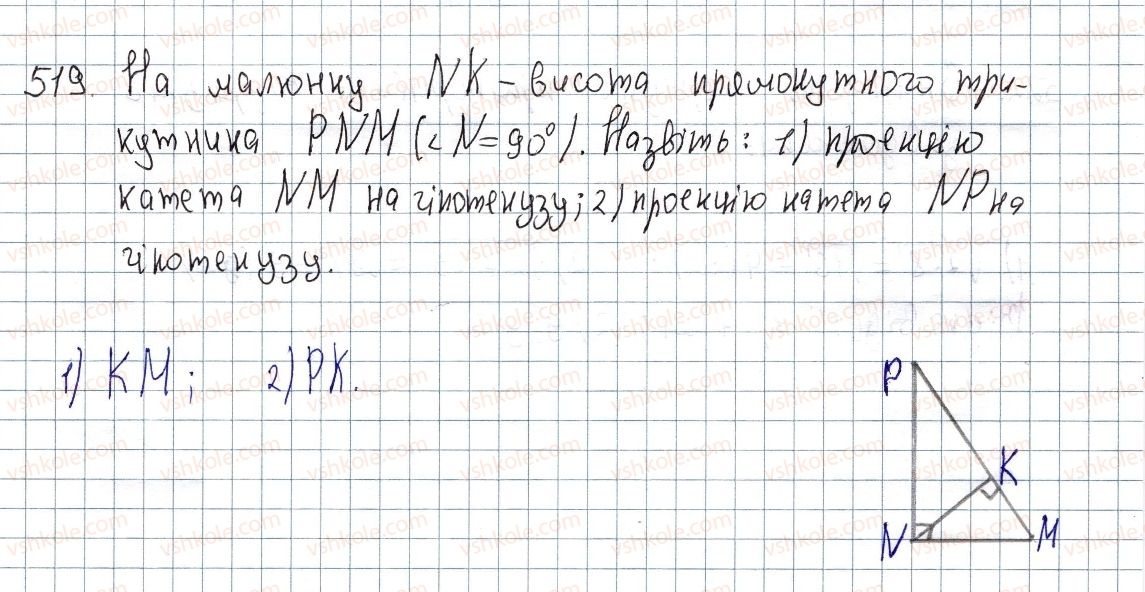 519. На малюнку NK - висота прямокутного три-
кутника PNM (< N = 90°). Назвіть: 1) проекцію
катета NM на гіпотенузу; 2) проекцію катета NP на
гіпотенузу.
1) KM; 2) PK.
P
K
N M
vshkole.com